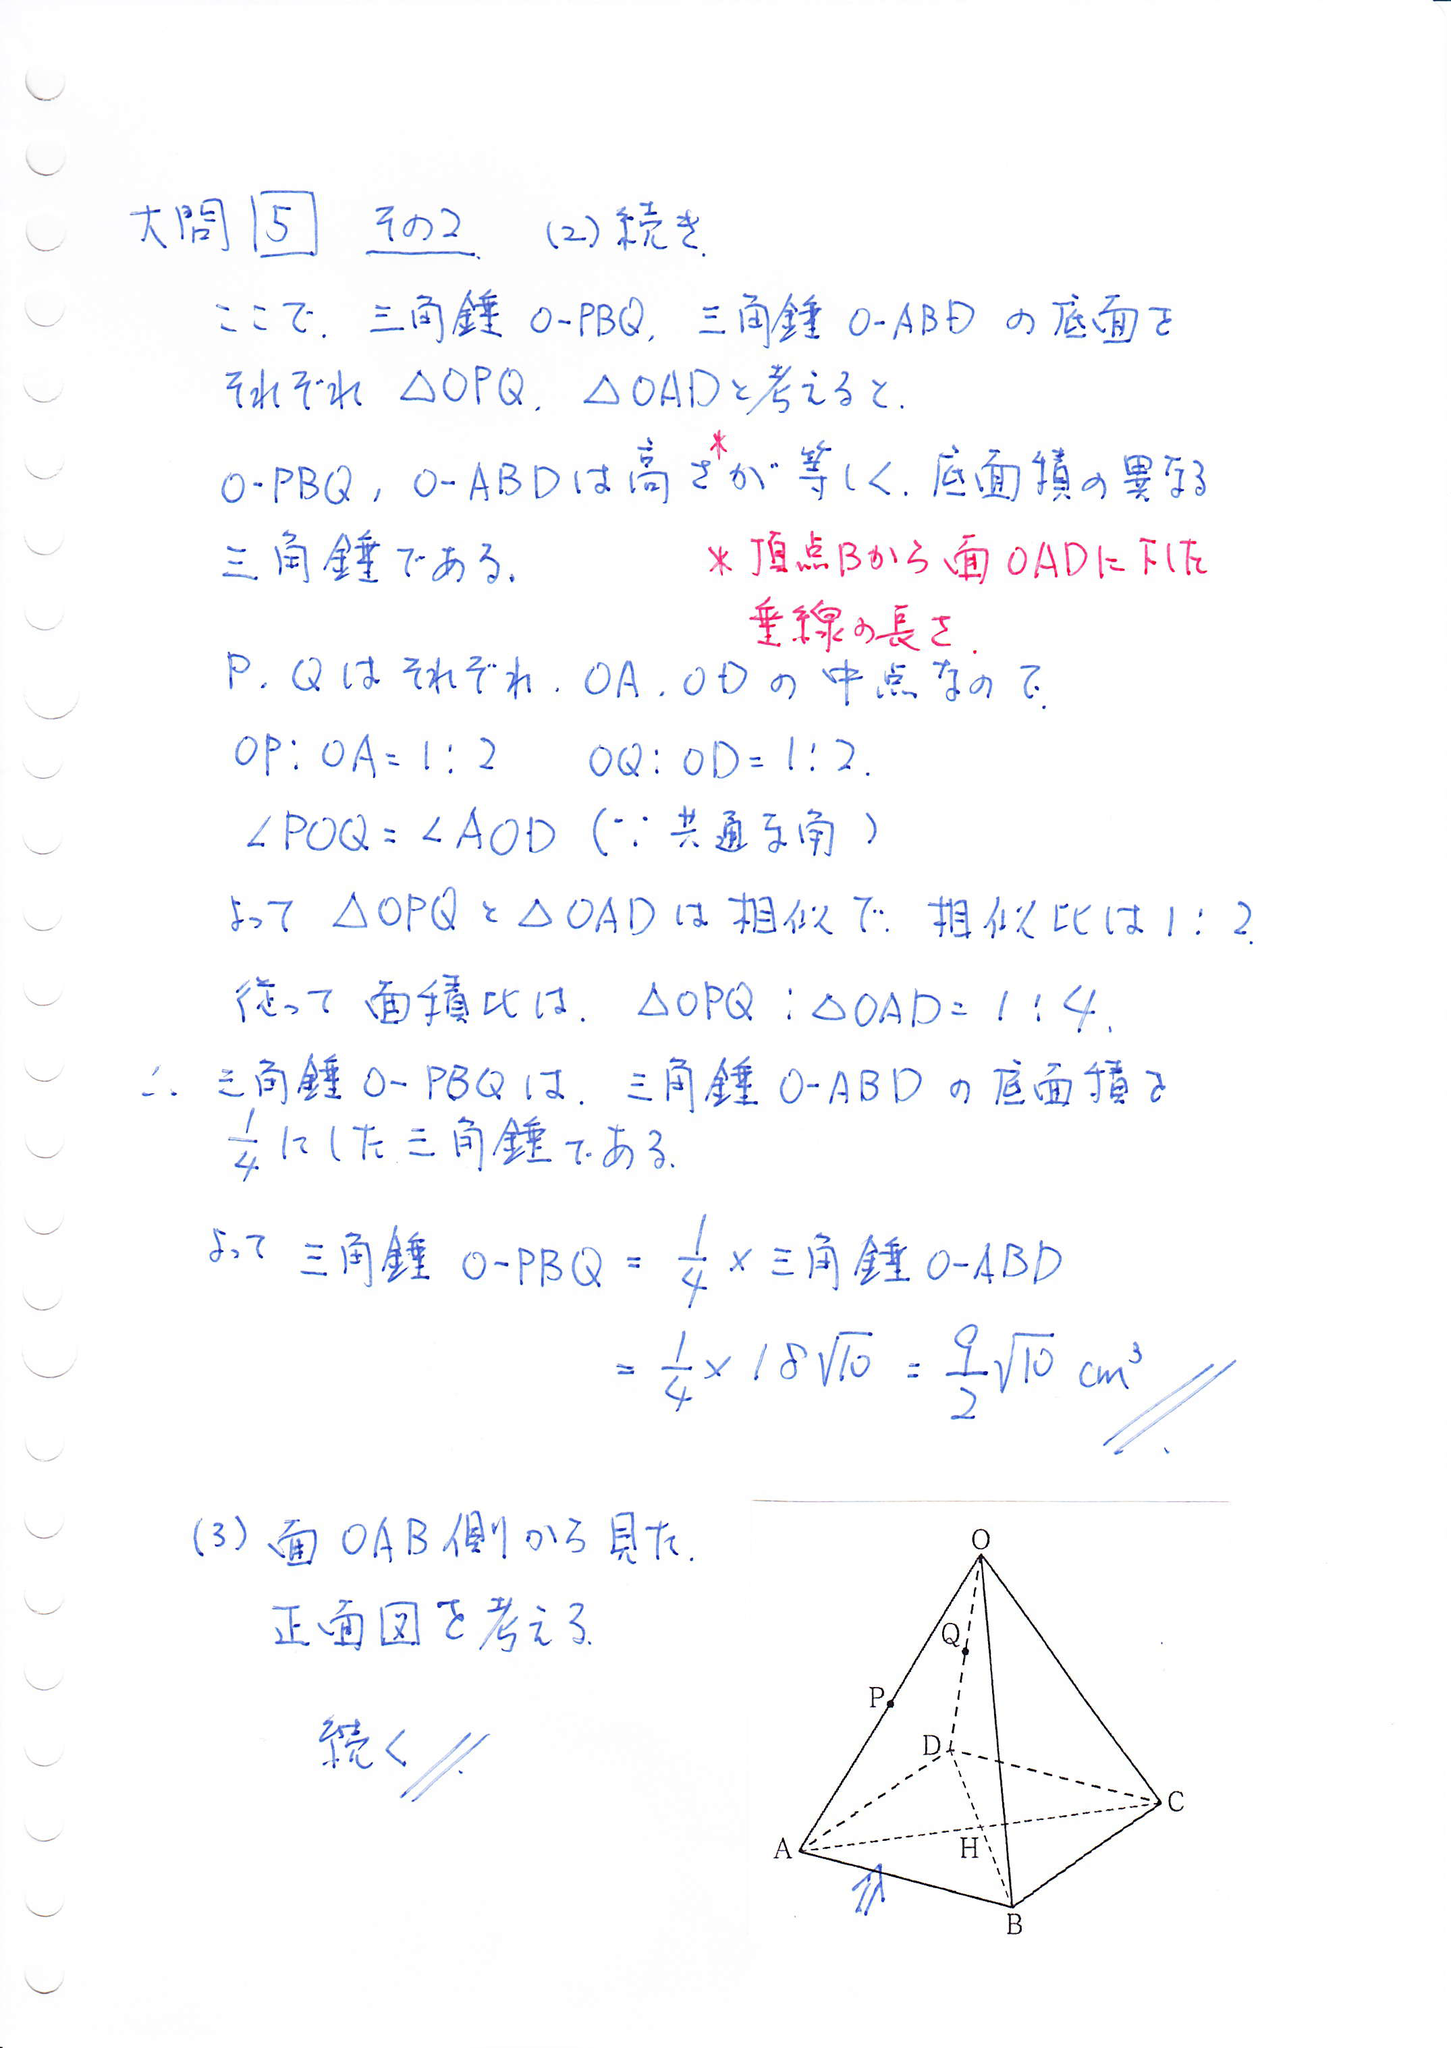 大問 5 その2 (2)続き.
ここで. 三角錘 O-PBQ, 三角錘 O-ABD の底面を
それぞれ △OPQ, △OADと考えると.
O-PBQ, O-ABDは高さ*が等しく. 底面積の異なる
三角錘である.
* 頂点Bから面OADに下した
垂線の長さ.
P. Qはそれぞれ. OA. ODの中点なので.
OP:OA=1:2 OQ:OD=1:2.
∠POQ=∠AOD (∵共通な角)
よって △OPQと△OADは相似で. 相似比は1:2.
従って面積比は. △OPQ:△OAD=1:4.
∴ 三角錘O-PBQは. 三角錘O-ABDの底面積を
1/4にした三角錘である.
よって 三角錘 O-PBQ = 1/4 × 三角錘 O-ABD
= 1/4 × 18√10 = 9/2 √10 cm³
(3) 面OAB側から見た.
正面図を考える.
続く
O
Q
P
D
C
A
H
B